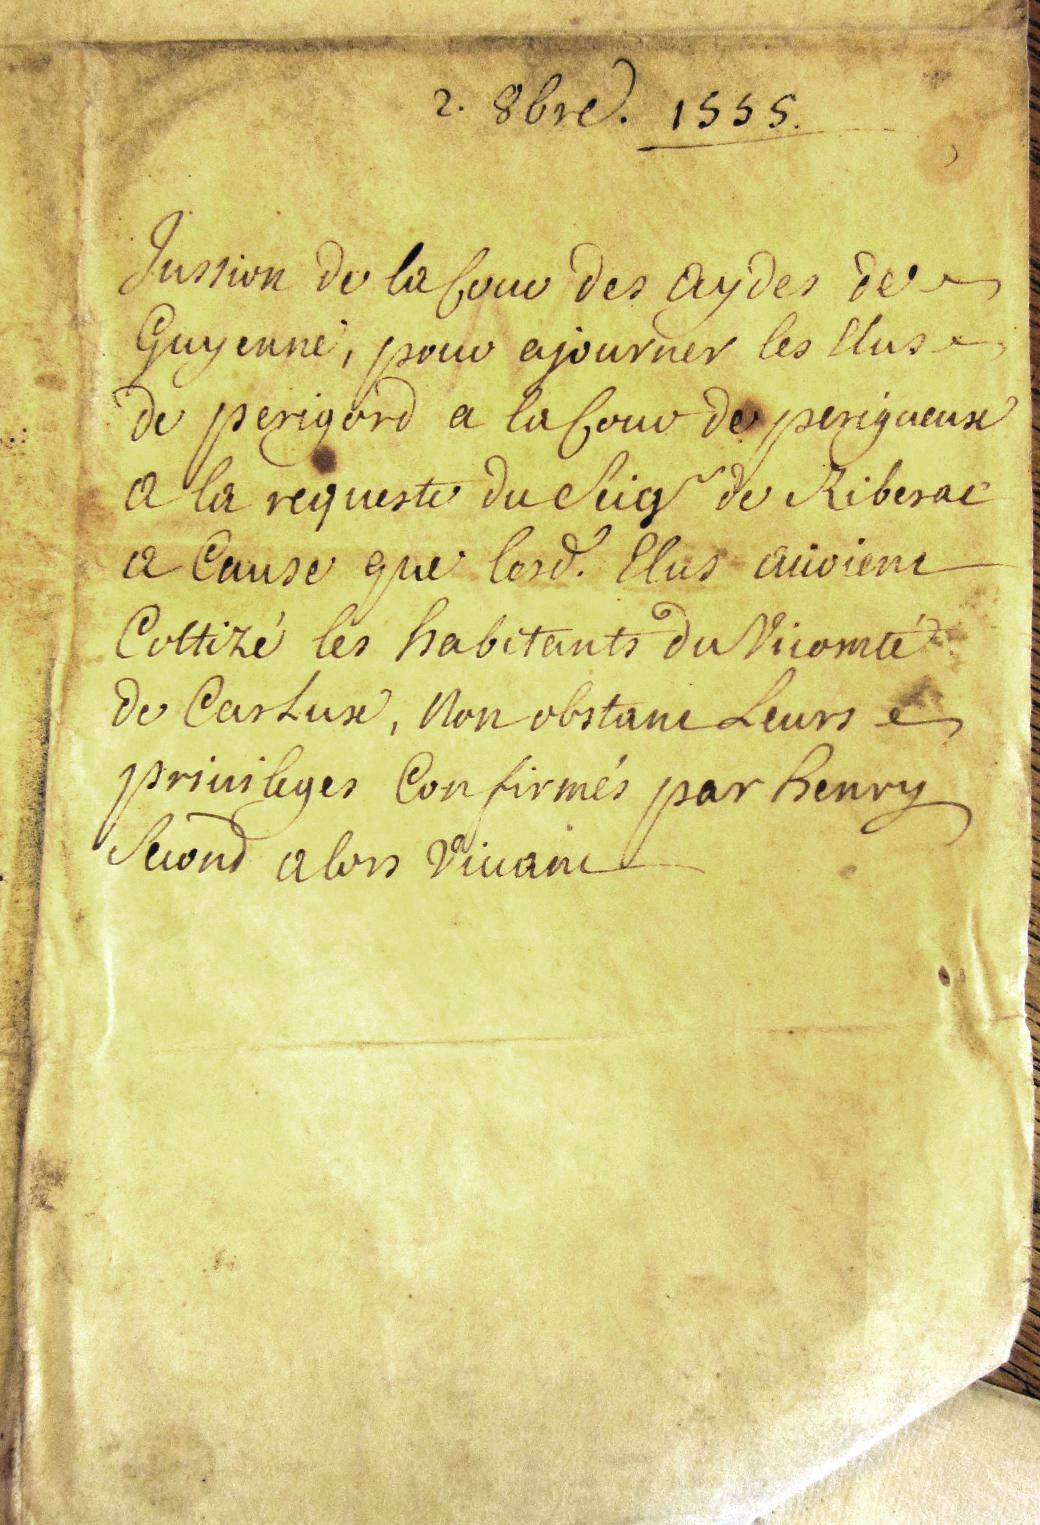 2. 8bre. 1555.
Jussion de la Cour des aydes de
Guyenne, pour ajourner les Elus
de perigord a la Cour de perigueux
a la requeste du Seigr de Riberac
a Cause que lesd. Elus auoient
Cottizé les habitants du Vicomté
de Carlux, Non obstant Leurs
priuileges Confirmés par henry
Second alors Viuant